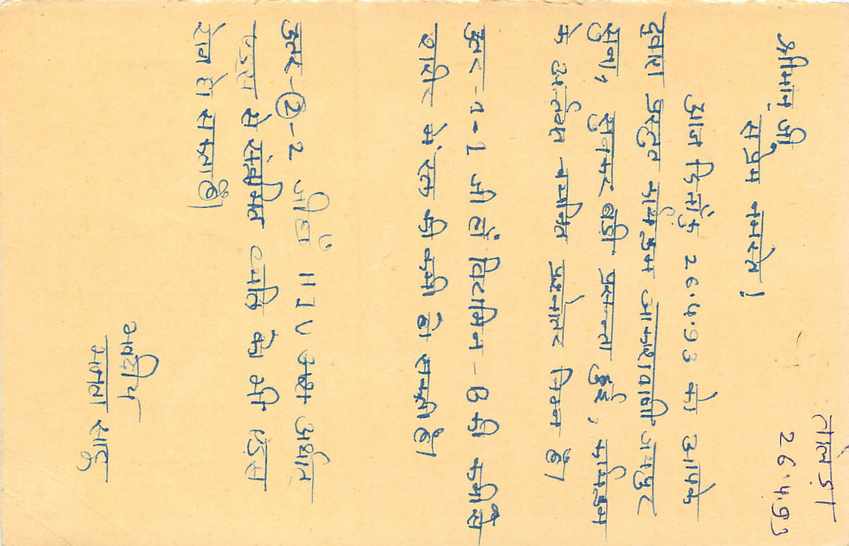 तालेड़ा
26.4.93
श्रीमान् जी
सप्रेम नमस्ते!
आज दिनाँक 26.4.93 को आपके
द्वारा प्रस्तुत कार्यक्रम आकाशवाणी जयपुर
सुना, सुनकर बड़ी प्रसन्नता हुई, कार्यक्रम
के अर्न्तगत प्रश्नोत्तर निम्न है।
उत्तर-1-1 जी हाँ विटामिन-B की कमी से
शरीर में रक्त की कमी हो सकती है।
उत्तर-②-2 जी हाँ HIV अंश अर्थात
एड्स से संक्रमित व्यक्ति को भी एड्स
रोग हो सकता है।
भवदीय
साहू